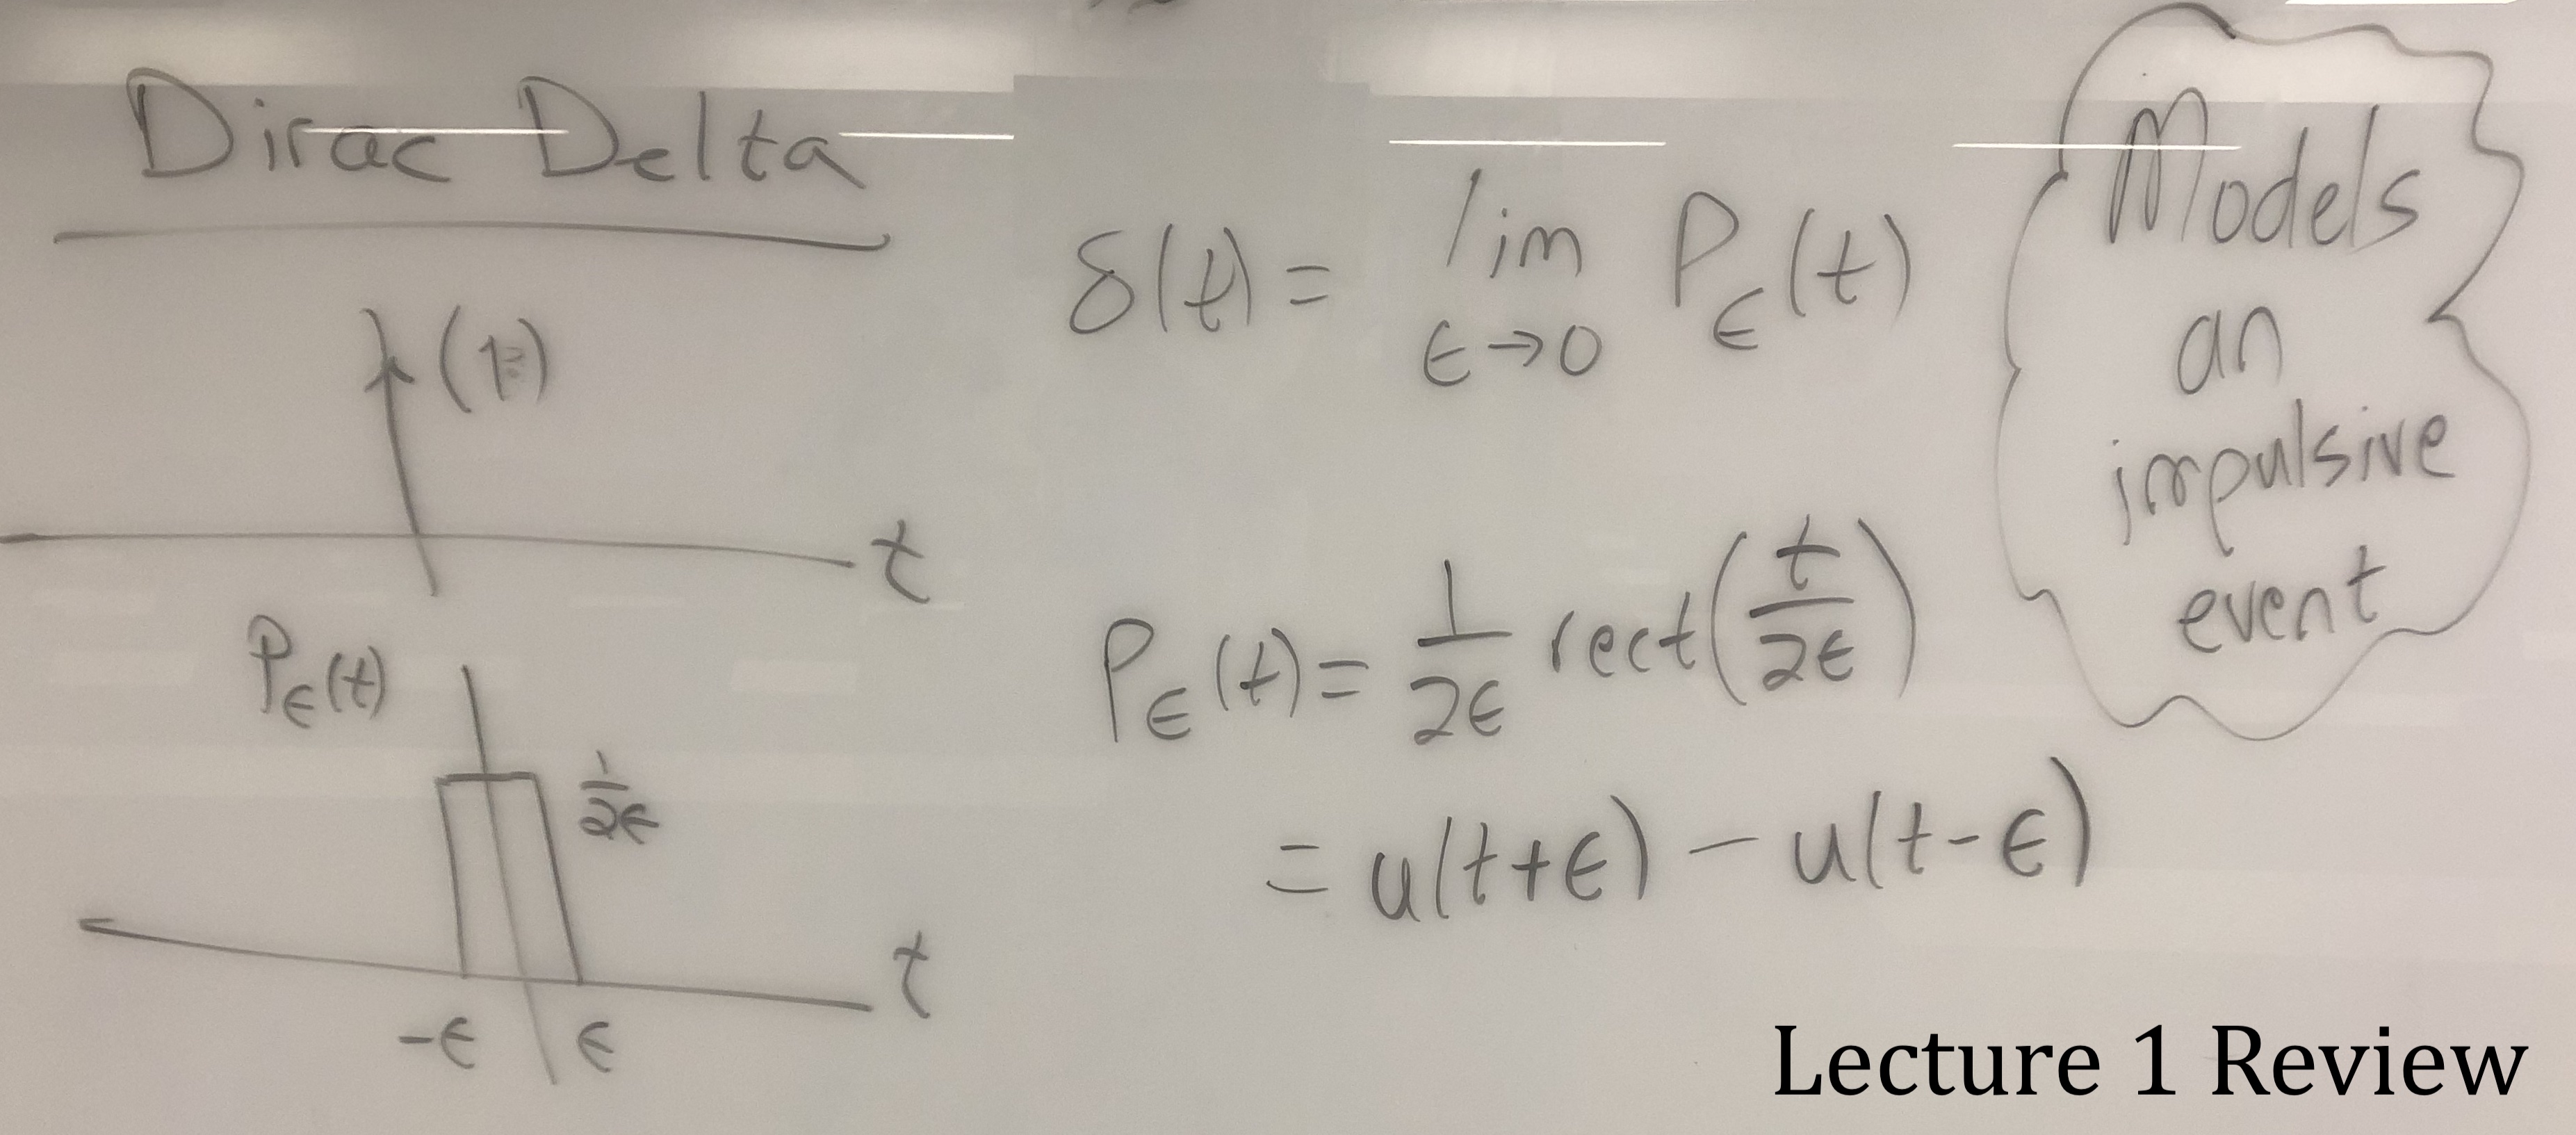 Dirac Delta
(1)
t
P_ϵ(t)
1/2ϵ
t
-ϵ ϵ
δ(t) = lim P_ϵ(t)
ϵ→0
P_ϵ(t) = 1/2ϵ rect(t/2ϵ)
= u(t+ϵ) - u(t-ϵ)
Models
an
impulsive
event
Lecture 1 Review